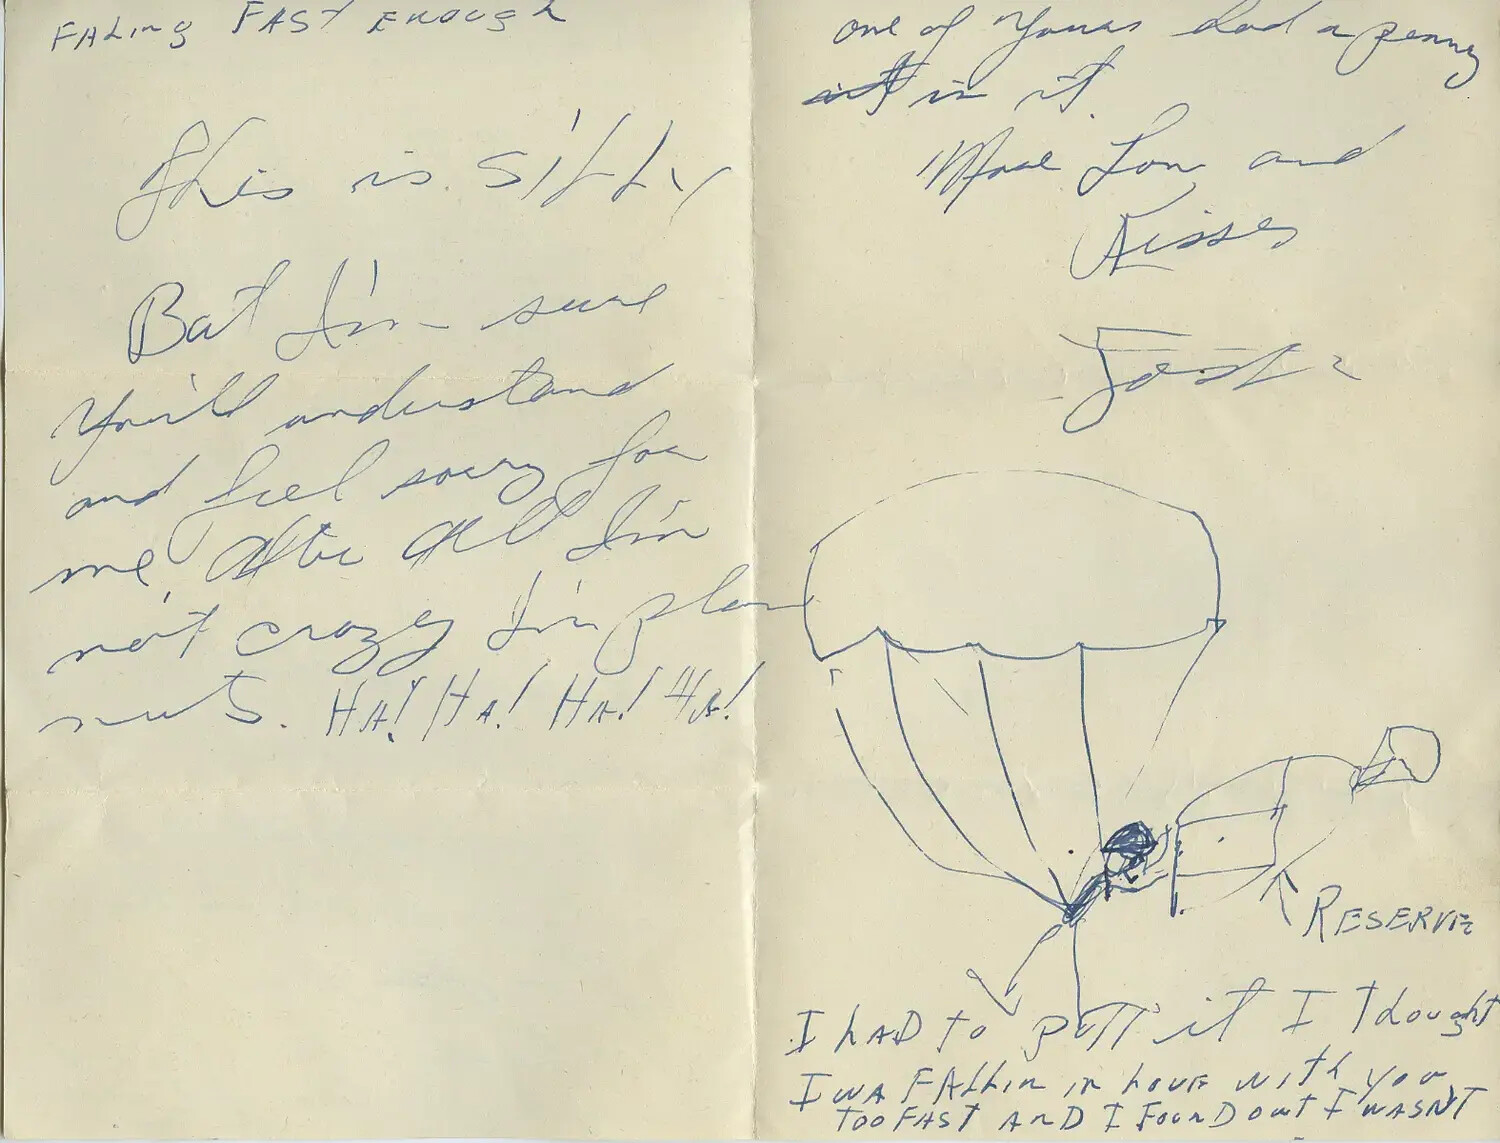 one of yours had a penny
in it.
More Love and
Kisses
RESERVE
I hAD to pull it I thought
I WA FALLin in LOVE with you
TOO FAST AnD I FOunD out I WASN'T
FALing FAST Enough
This is SiLLy
But I'm sure
You'll understand
and feel sorry for
me, After All I'm
not crazy I'm plane
nuts. HA! HA! HA! HA!